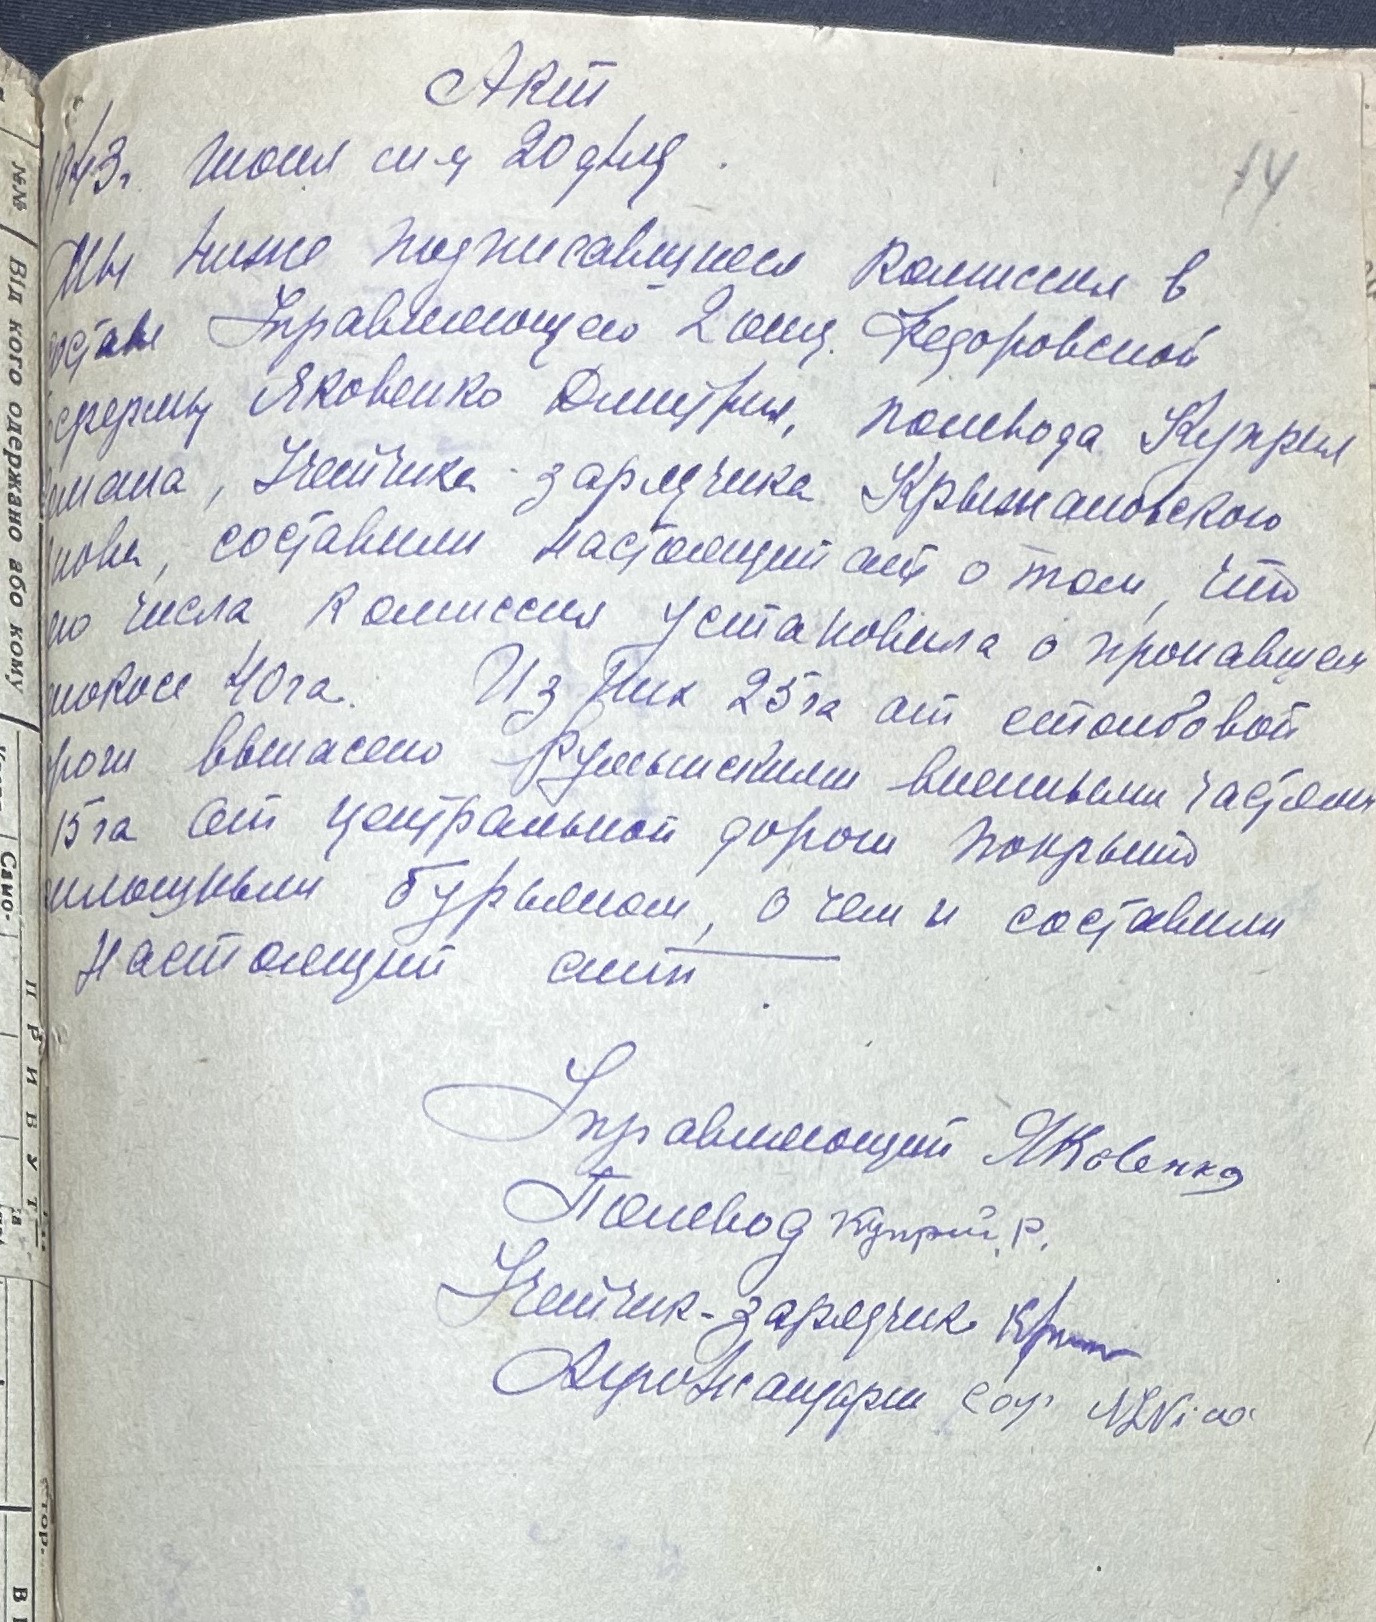 Акт
14
1943г. июня м-ц 20 дня.
Мы ниже подписавшиеся комиссия в
составе Управляющего 2 Федоровской
фермы Яковенко Дмитрия, полевода Куприя
Романа, Учетчика-зарядчика Крыжановского
составили настоящий акт о том, что
сего числа комиссия установила о пропавшем
сенокосе 40 га. Из них 25 га от столбовой
дороги выпасено Румынскими военными частями
15 га от центральной дороги покрыто
сплошным бурьяном, о чем и составили
настоящий акт.
Управляющий Яковенко
Полевод Куприй Р.
Учетчик-зарядчик
Агрожандарм
№№
Від кого одержано або кому
Само-
П Р И Б У Т